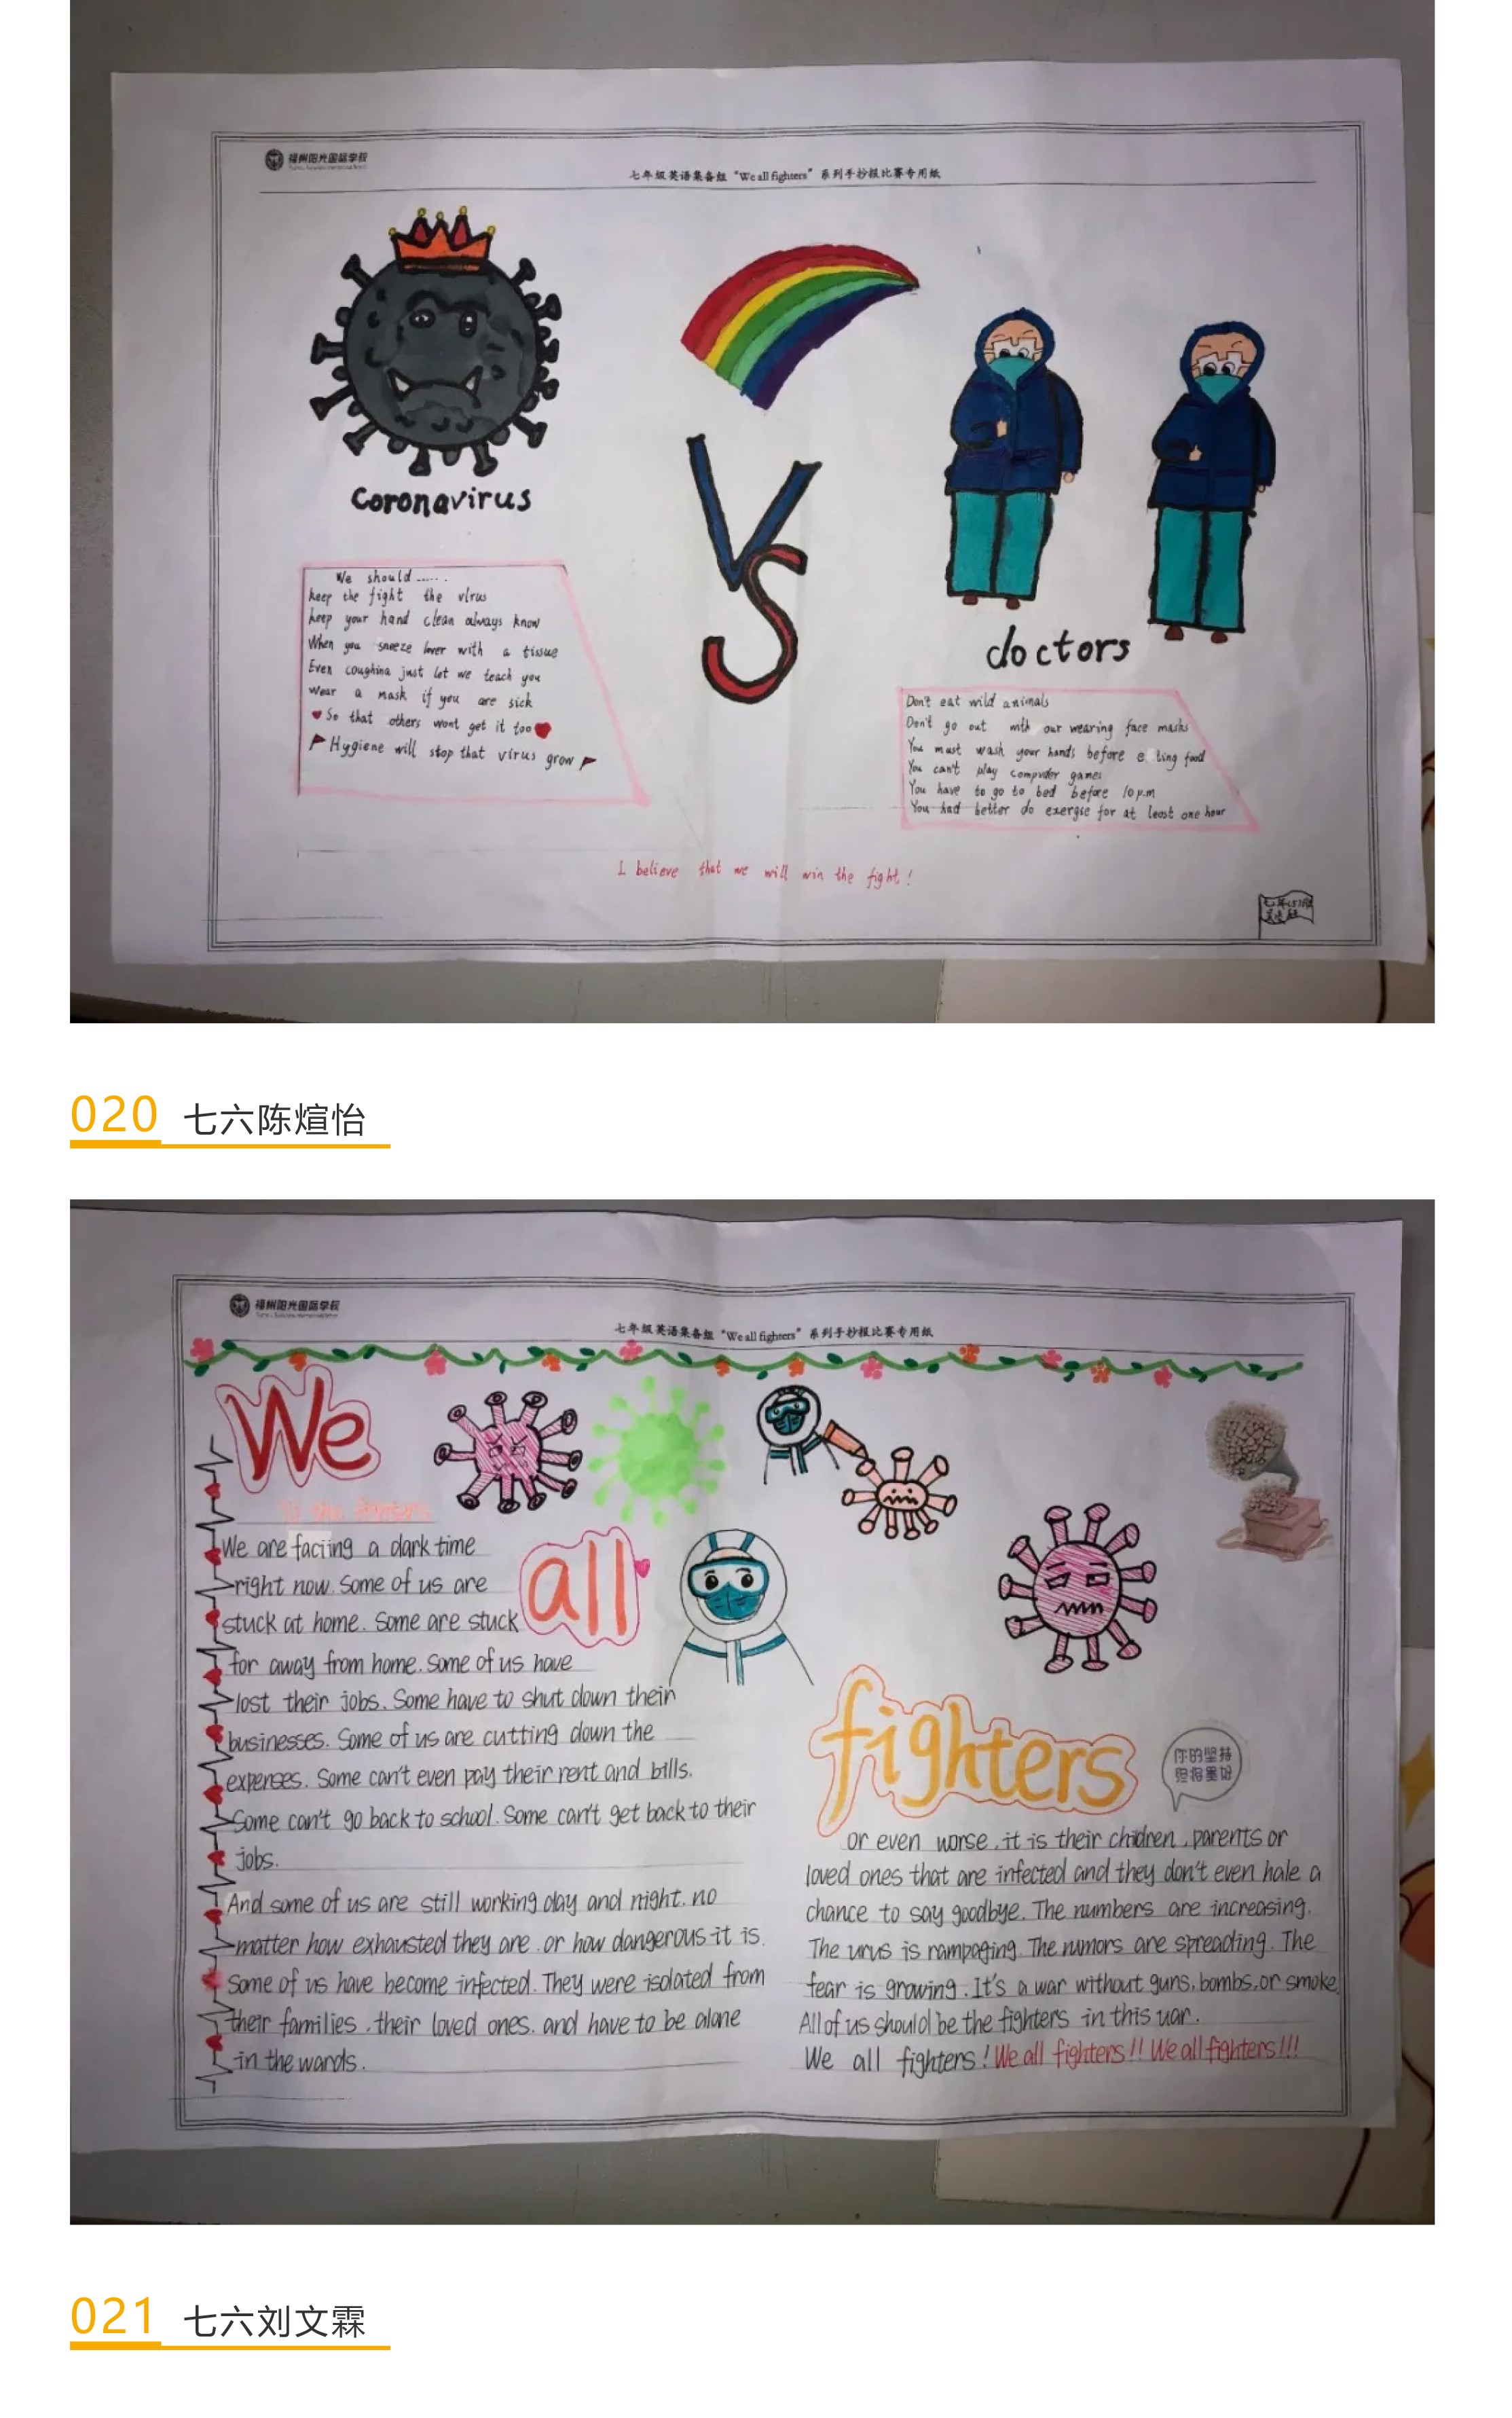 福州阳光国际学校
七年级英语集备组“We all fighters”系列手抄报比赛专用纸
Coronavirus
VS
doctors
We should......
keep the fight the virus
keep your hand clean always know
When you sneeze with a tissue
Even coughing just let we teach you
Wear a mask if you are sick
So that others wont get it too
Hygiene will stop that virus grow
Don't eat wild animals
Don't go out our wearing face masks
You must wash your hands before eating food
You can't play computer games
You have to go to bed before 10p.m
You had better do exergse for at least one hour
I believe that we will win the fight!
020 七六陈煊怡
福州阳光国际学校
七年级英语集备组“We all fighters”系列手抄报比赛专用纸
We
To the fighters
We are faciing a dark time
right now. Some of us are
stuck at home. Some are stuck
all
for away from home. Some of us have
lost their jobs. Some have to shut down their
businesses. Some of us are cutting down the
expenses. Some can't even pay their rent and bills.
Some can't go back to school. Some can't get back to their
jobs.
And some of us are still working day and night. no
matter how exhausted they are. or how dangerous it is.
Some of us have become infected. They were isolated from
their families. their loved ones. and have to be alone
in the wards.
fighters
你的坚持
终将美好
or even worse. it is their chidren. parents or
loved ones that are infected and they don't even hale a
chance to say goodbye. The numbers are increasing.
The is rampaging. The rumors are spreading. The
fear is growing. It's a war without guns, bombs, or smoke.
All of us should be the fighters in this war.
We all fighters! We all fighters!! We all fighters!!!
021 七六刘文霖